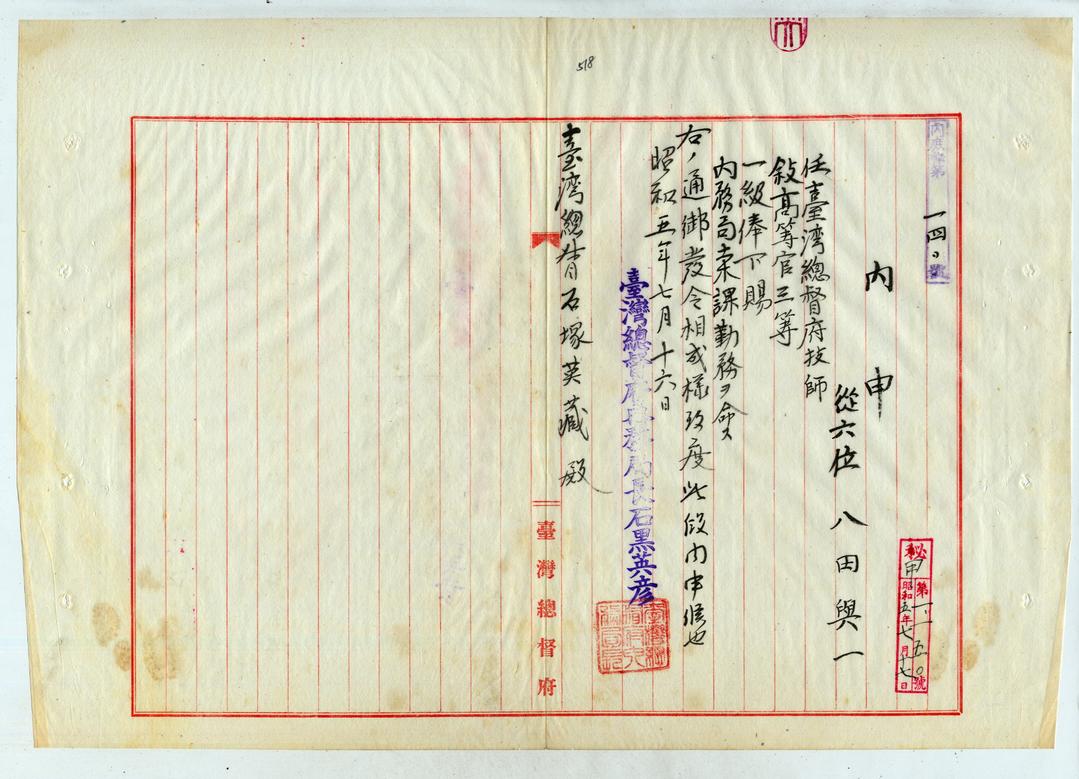 518
一四〇號
内申
從六位 八田與一
任臺湾總督府技師
敍高等官三等
一級俸下賜
内務局土木課勤務ヲ命ス
右ノ通御發令相成様致度此段内申候也
昭和五年七月十六日
臺灣總督府内務局長石黑英彦
臺湾總督石塚英藏殿
臺灣總督府
秘甲第一一五〇號
昭和五年七月十七日